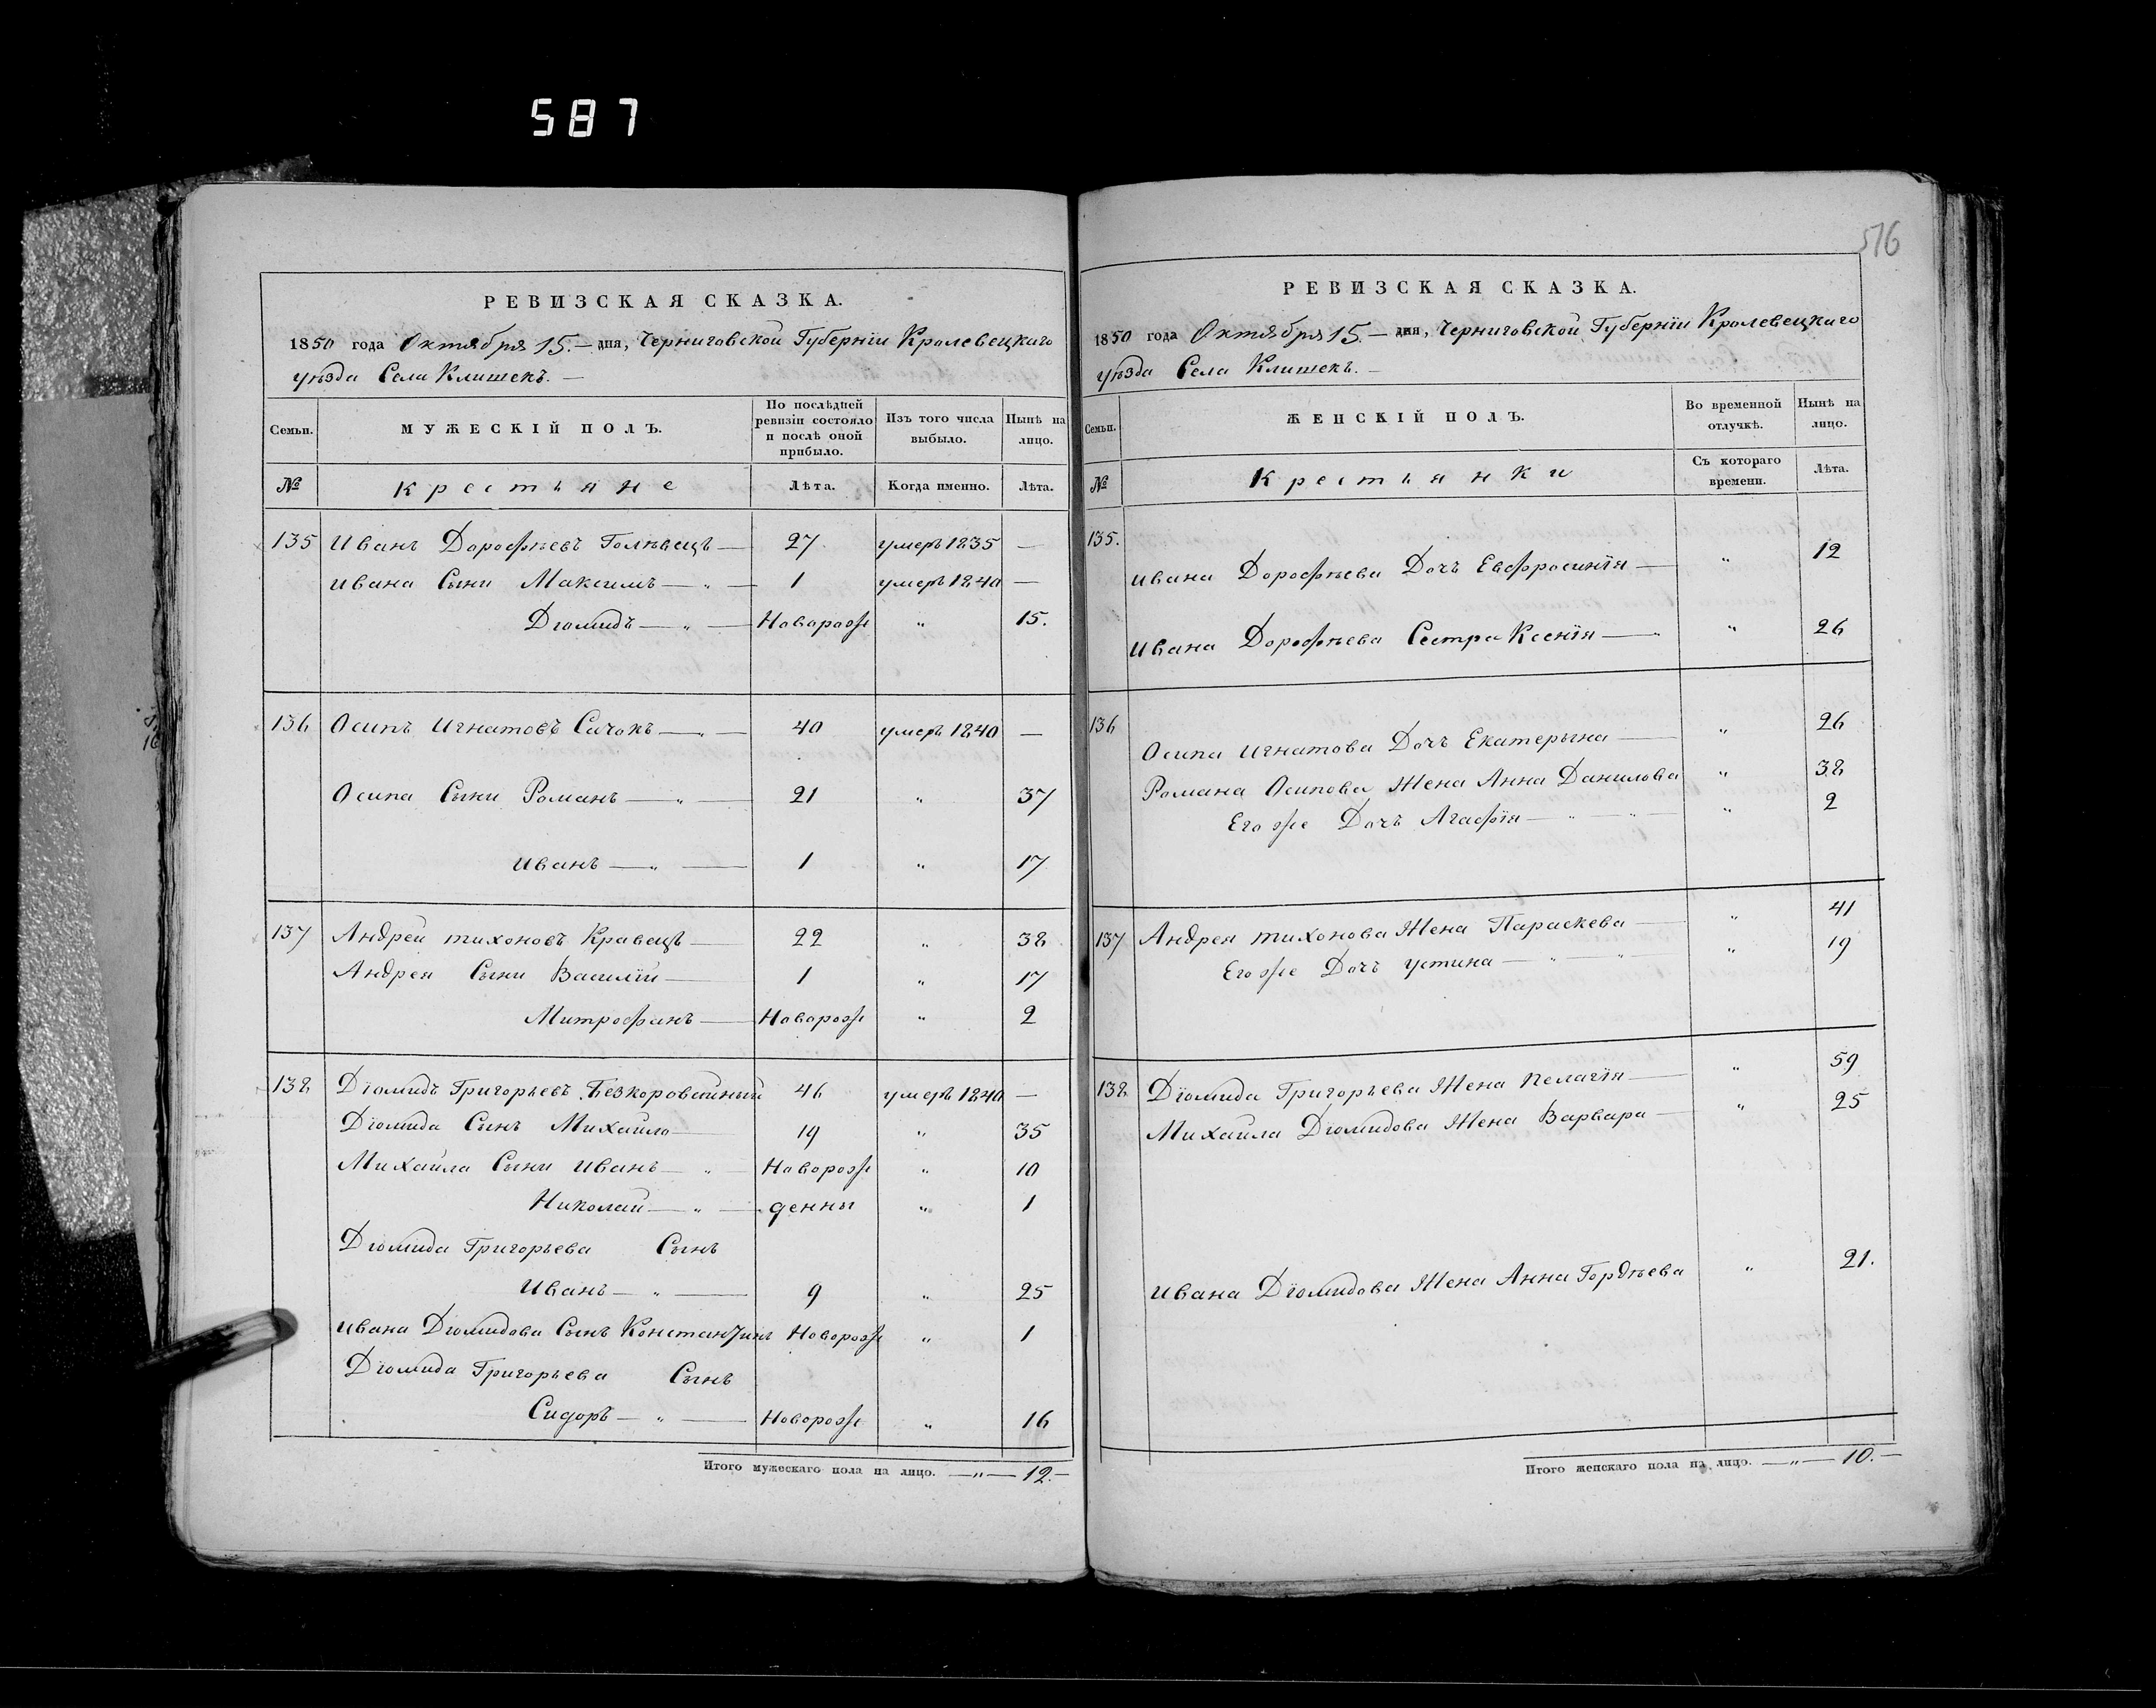 587
РЕВИЗСКАЯ СКАЗКА.
1850 года Октября 15.— дня, Черниговской Губернїи Кролевецкаго
уѣзда Села Клишекъ.—
Семьи.
МУЖЕСКІЙ ПОЛЪ.
По послѣдней ревизіи состояло и послѣ оной прибыло.
Изъ того числа выбыло.
Нынѣ на лицо.
№ Крестьяне Лѣта. Когда именно. Лѣта.
135 Иванъ Дорофѣевъ Голѣвецъ — 27 умеръ 1835 —
Ивана Сыни Максимъ — " — 1 умеръ 1840 —
Дїомидъ — " — Новорож " 15.
136 Осипъ Игнатовъ Сачокъ — " — 40 умеръ 1840 —
Осипа Сыни Романъ — " — 21 " 37
Иванъ — " — 1 " 17
137 Андрей Тихоновъ Кравецъ — 22 " 38
Андрея Сыни Василїй — 1 " 17
Митрофанъ — Новорож " 2
138 Дїомидъ Григорьевъ Безкоровайный 46 умеръ 1840 —
Дїомида Сынъ Михайло — 19 " 35
Михайла Сыни Иванъ — " — Новорож " 10
Николай — " — денны " 1
Дїомида Григорьева Сынъ
Иванъ — " — 9 " 25
Ивана Дїомидова Сынъ Константинъ Новорож " 1
Дїомида Григорьева Сынъ
Сидоръ — " — Новорож " 16
Итого мужескаго пола на лицо. — " — 12.—
516
РЕВИЗСКАЯ СКАЗКА.
1850 года Октября 15.— дня, Черниговской Губернїи Кролевецкаго
уѣзда Села Клишекъ.—
Семьи.
ЖЕНСКІЙ ПОЛЪ.
Во временной отлучкѣ.
Нынѣ на лицо.
№ Крестьянки Съ котораго времени. Лѣта.
135.
Ивана Дорофѣева Дочъ Евфросинїя — " 12
Ивана Дорофѣева Сестра Ксенїя — " " 26
136
Осипа Игнатова Дочъ Екатерына — " 26
Романа Осипова Жена Анна Данилова " 38
Его же Дочъ Агафїя — " — " — " 2
137 Андрея Тихонова Жена Параскева — " 41
Его же Дочъ Устина — " — " — " 19
138 Дїомида Григорьева Жена Пелагїя — " 59
Михайла Дїомидова Жена Варвара — " 25
Ивана Дїомидова Жена Анна Гордѣева " 21.
Итого женскаго пола на лицо. — " — 10.—